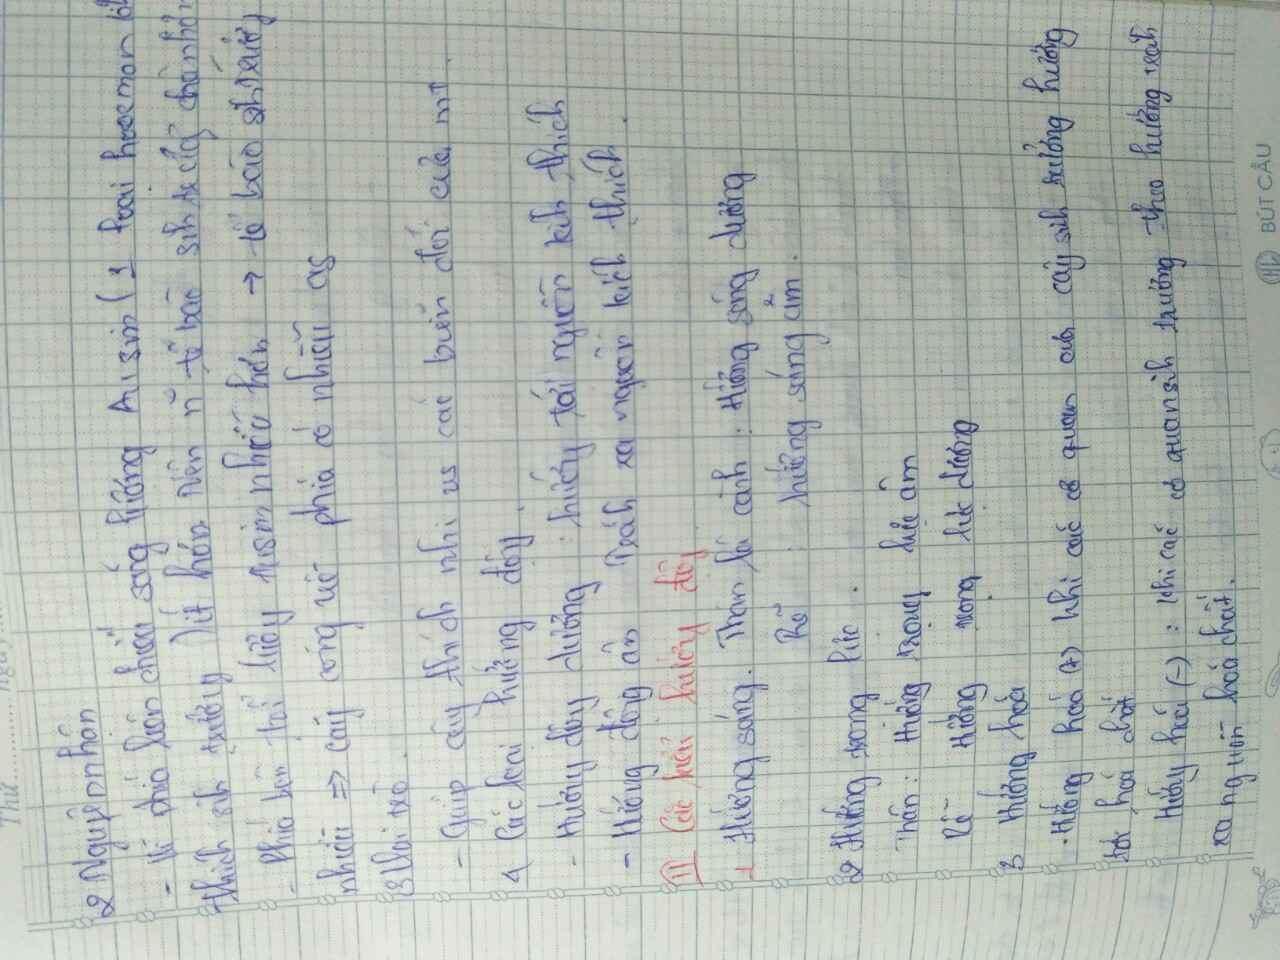 Thứ ......... Ngày ....
2 Nguyên nhân
- Vì phía lên chiều sáng lượng Auxin ( 1 loại hoocmon
thích sih trưởng ) ít hơn nên n tế bào sih tr
- Phía bên tối lượng auxin nhiều hơn → tế bào sih trưởng
nhiều ⇒ cây cong về phía có nhiều as
3 Vai trò.
- Giúp cây thích nhi vs các biến đổi của mt.
4 Các loại hướng động.
- Hướng động dương : hướng tới nguồn kih thích
- Hướng động âm Tránh xa nguồn kích thích.
II Các kiểu hướng động
1 Hướng sáng. Thân lá cành : Hướng sáng dương
Rễ : hướng sáng âm.
2 Hướng trọng lực.
Thân : Hướng trọng lực âm
Rễ Hướng trọng lực dương
3 Hướng hóa
- Hướng hoá (+) khi các cơ quan của cây sih trưởng hướng
tới hoá chất
Hướng hoá (-) : khi các cơ quan sih trưởng theo hướng tránh
xa nguồn hoá chất.
BÚT CẦU